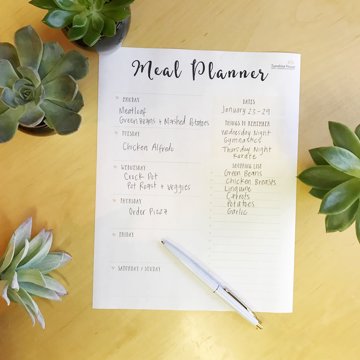 Meal Planner
MONDAY
Meatloaf
Green Beans + Mashed Potatoes
TUESDAY
Chicken Alfredo
WEDNESDAY
Crock Pot
Pot Roast + Veggies
THURSDAY
Order Pizza
FRIDAY
SATURDAY / SUNDAY
DATES
January 23-29
THINGS TO REMEMBER
Wednesday Night
Gymnastics
Thursday Night
Karate
SHOPPING LIST
Green Beans
Chicken Breasts
Linguine
Carrots
Potatoes
Garlic